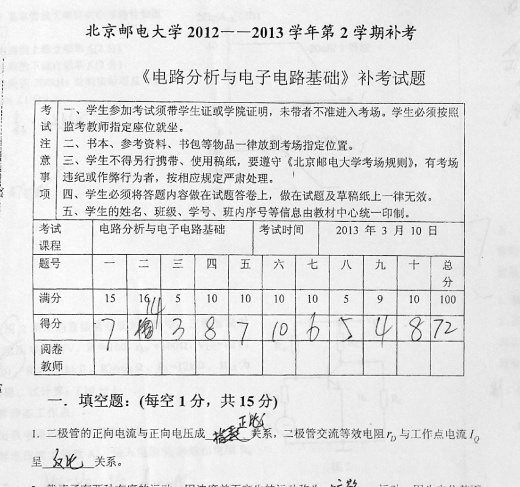 北京邮电大学 2012——2013 学年第 2 学期补考
《电路分析与电子电路基础》补考试题
考试注意事项
一、学生参加考试须带学生证或学院证明，未带者不准进入考场。学生必须按照
监考教师指定座位就坐。
二、书本、参考资料、书包等物品一律放到考场指定位置。
三、学生不得另行携带、使用稿纸，要遵守《北京邮电大学考场规则》，有考场
违纪或作弊行为者，按相应规定严肃处理。
四、学生必须将答题内容做在试题答卷上，做在试题及草稿纸上一律无效。
五、学生的姓名、班级、学号、班内序号等信息由教材中心统一印制。
考试课程 电路分析与电子电路基础 考试时间 2013 年 3 月 10 日
题号 一 二 三 四 五 六 七 八 九 十 总分
满分 15 16 5 10 10 10 10 5 9 10 100
14
得分 7 3 8 7 10 6 5 4 8 72
阅卷教师
一．填空题：(每空 1 分，共 15 分)
正比
1. 二极管的正向电流与正向电压成 指数 关系，二极管交流等效电阻 r_D 与工作点电流 I_Q
呈 反比 关系。